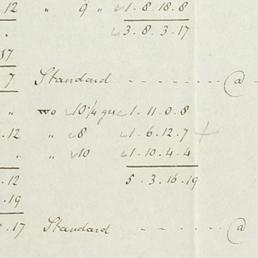 12 " 9 " 1.8.18.8
. 3.8.3.17
37
7 Standard - - - - - @
. wo 10¼ grs 1.11.0.8
.12 " 8 1.6.12.7
" " 10 1.10.4.4
.12 5.3.16.19
.19
.17 Standard - - - - - @